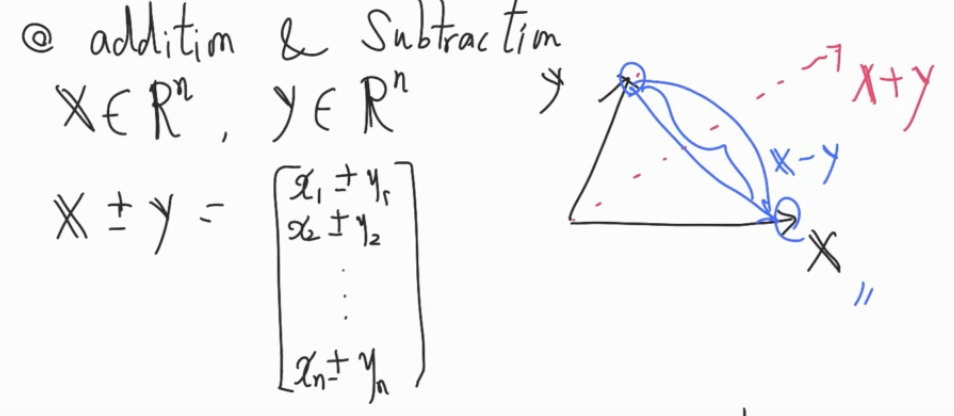 @ addition & Subtraction
X ∈ Rⁿ, y ∈ Rⁿ
X ± y =
x₁ ± y₁
x₂ ± y₂
⋮
xₙ ± yₙ
y
X+y
X-y
X